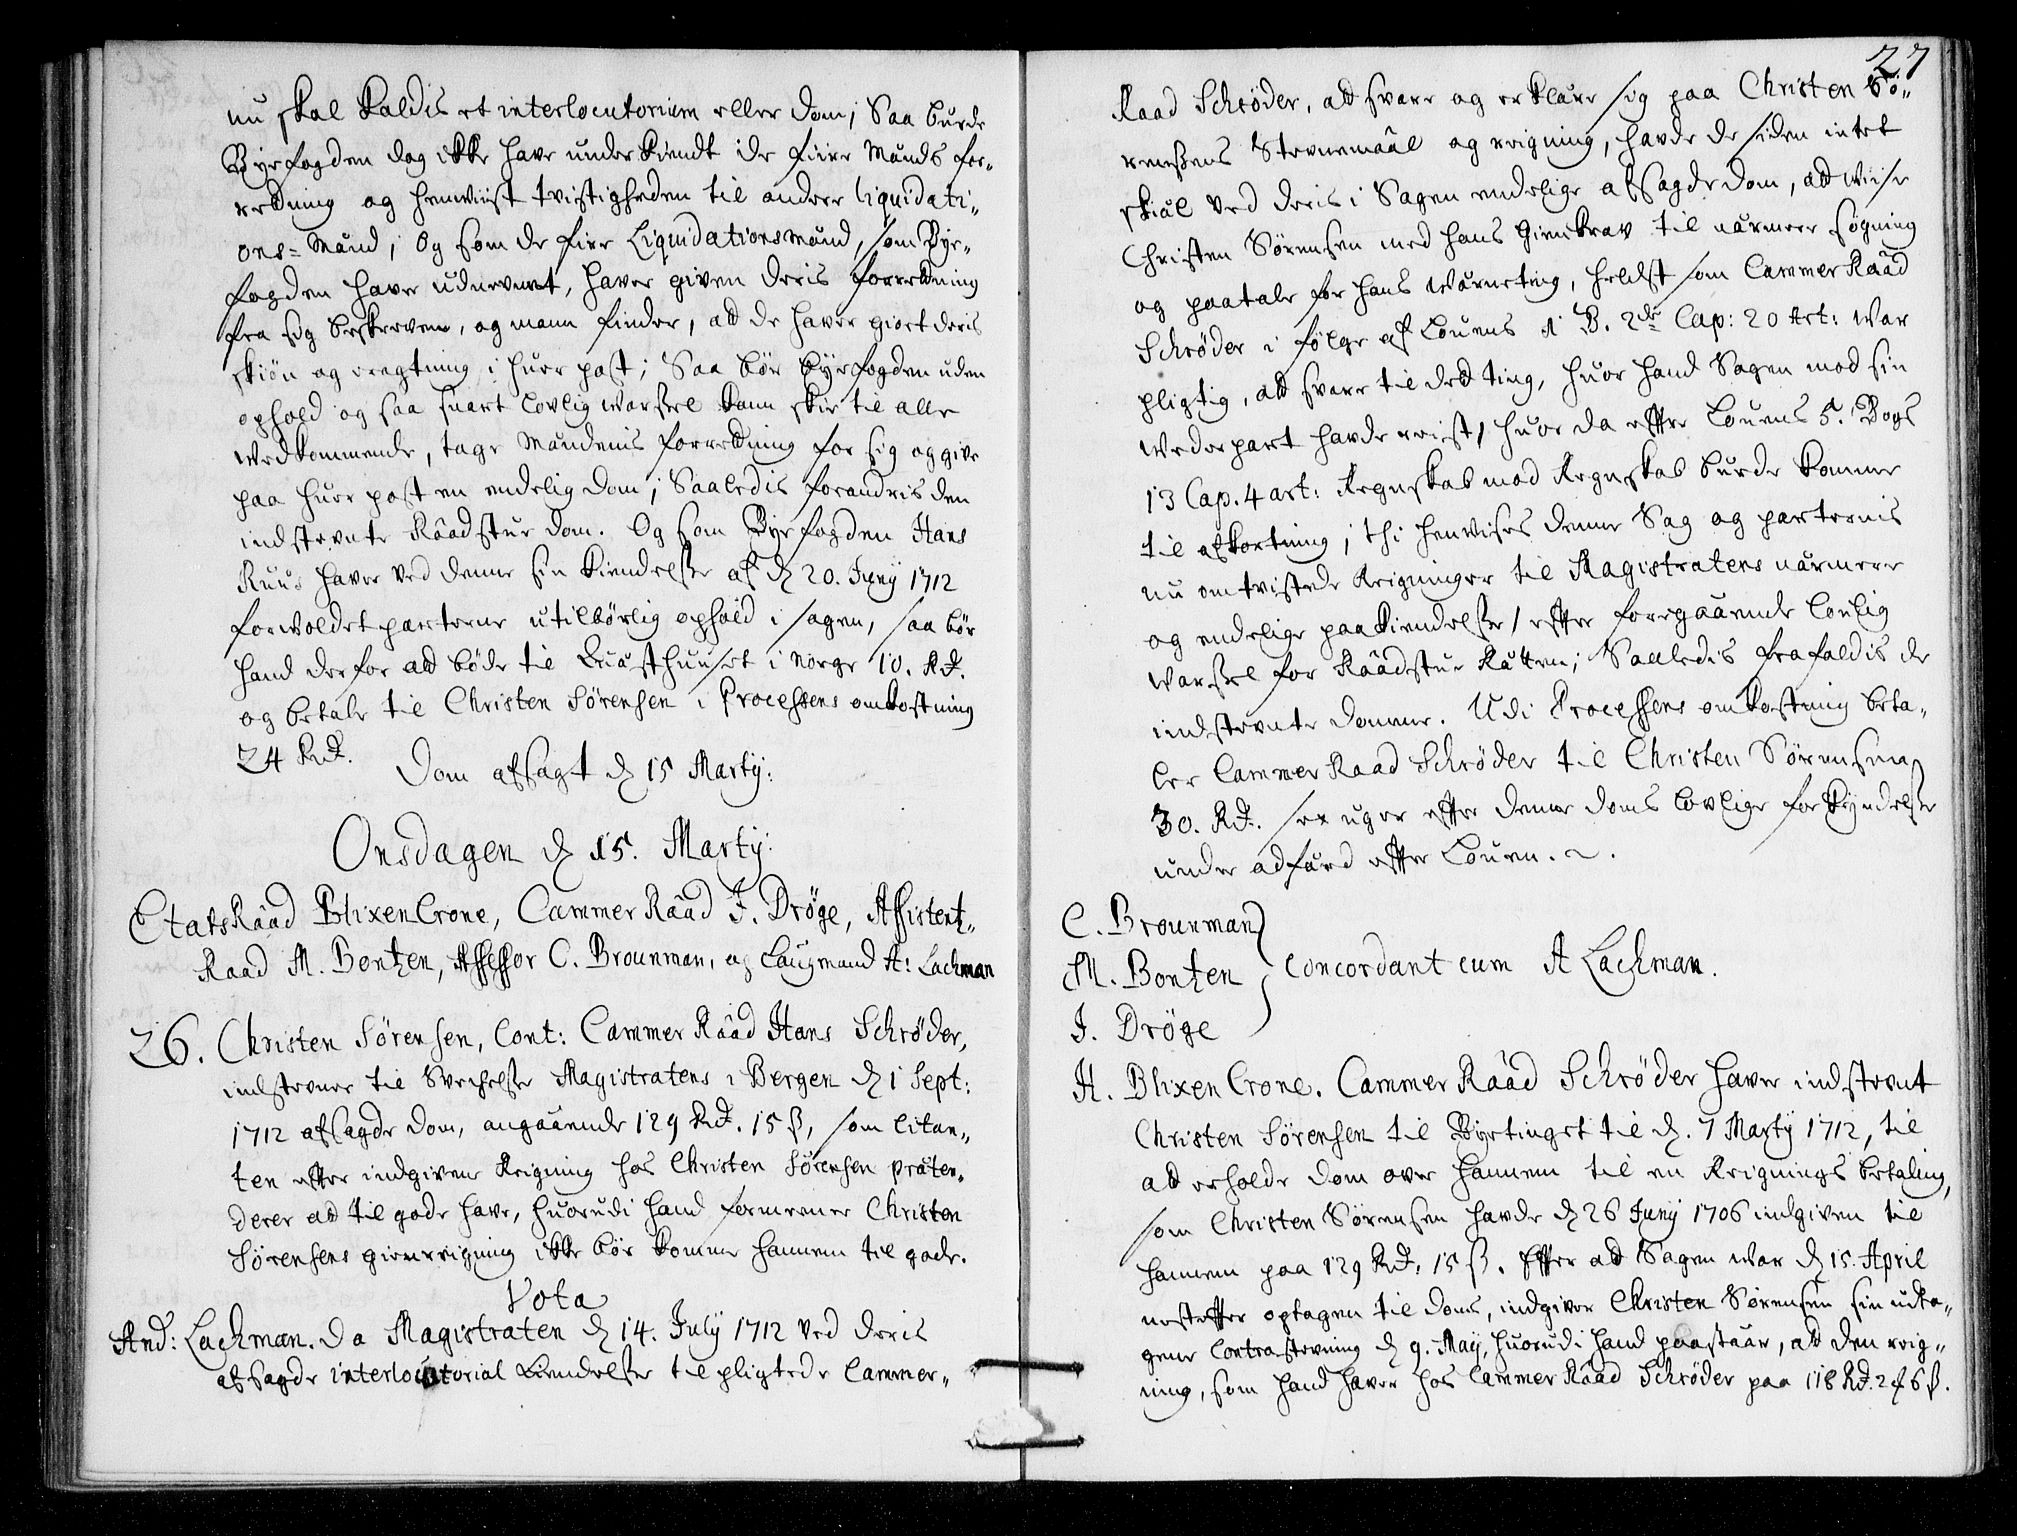 nu skal kaldis et interlocutorium eller Dom; Saa burde
Byefogden dog ikke have underkiendt de fiire Mænds for-
retning og henviist tvistigheden til andre liquidati-
ons-Mænd; Og som de fire Liquidationsmænd, som Bye-
fogden have udnevnt, haver given deris forretning
fra sig beskreven, og mann finder, at de haver giort deris
skiøn og eragtning i huer post; Saa bør byefogden uden
ophold og saa snart lovlig Warsel kann skee til alle
Wedkommende, tage Mændenis forretning for sig og give
paa huer post en endelig Dom; Saaledis forandris den
indstevnte Raadstue Dom. Og som Byefogden Hans
Ruus haver ved denne sin kiendelse af d 20. Juny 1712
forvoldet parterne utilbørlig ophold i sagen, saa bør
hand derfor at bøde til Quæsthuuset i Norge 10. Rd.
og betale til Christen Sörensen i Processens omkostning
24 Rd.
Dom afsagt d 15 Marty:
Onsdagen d 15. Marty:
EtatsRaad BlixenCrone, CammerRaad J. Dröge, Assistentz-
Raad M. Bontzen, Assessor C. Brounman, og Laugmand A: Lachman
26. Christen Sörensen, Cont: Cammer Raad Hans Schrøder,
indstevner til Svechelse Magistratens i Bergen d 1 Sept:
1712 afsagde Dom, angaaende 129 Rd. 15 ß, som Citan-
ten efter indgivene Reigning hos Christen Sörensen præten-
derer at til gode have, huorudi hand formeener Christen
Sörensens gienreigning ikke bör komme hannem til gode.
Vota
And: Lachman. Da Magistraten d 14. July 1712 ved deris
afsagde interlocutorial Kiendelse tilpligtede Cammer-
27
Raad Schrøder, at svare og erklære sig paa Christen Sö-
rensens Stevnemaal og reigning, havde de siden intet
skiæl ved deris i Sagen endelige afsagde Dom, at viise
Christen Sørensen med hans Gienkrav til nærmere søgning
og paatale for hans Værneting, helst som CammerRaad
Schrøder i følge af Louens 1 B. 2de Cap: 20 Art: war
pligtig, at svare til det ting, huor hand Sagen mod sin
Wederpart havde reist, huor da efter Louens 5. Bogs
13 Cap. 4 art: Regnskab mod Regnskab burde komme
til afkortning; thi henvises denne Sag og parternis
nu omtvistede Reigninger til Magistratens nærmere
og endelige paakiendelse / efter foregaaende lovlig
Warsel for Raadstue Rætten; Saaledis frafaldis de
indstevnte Domme. Udi Processens omkostning beta-
ler CammerRaad Schrøder til Christen Sørensen
30. Rd. sex uger efter denne doms lovlige forkyndelse
under adfærd efter Louen.
C. Brounman
M. Bontzen concordant cum A Lachman.
J. Dröge
H. Blixen Crone. Cammer Raad Schröder haver indstevnt
Christen Sörensen til Byetinget til d. 7 Marty 1712, til
at erholde Dom over hannem til en Reignings betaling,
som Christen Sørensen havde d 26 Juny 1706 indgiven til
hannem paa 129 Rd: 15 ß. Efter at Sagen war d 15. April
nestefter optagen til Doms, indgiver Christen Sørensen sin udta-
gene Contrastevning d 9. May, huorudi hand paastaar, at den reig-
ning, som hand haver hos CammerRaad Schröder paa 118 Rd. 2 # 6 ß.